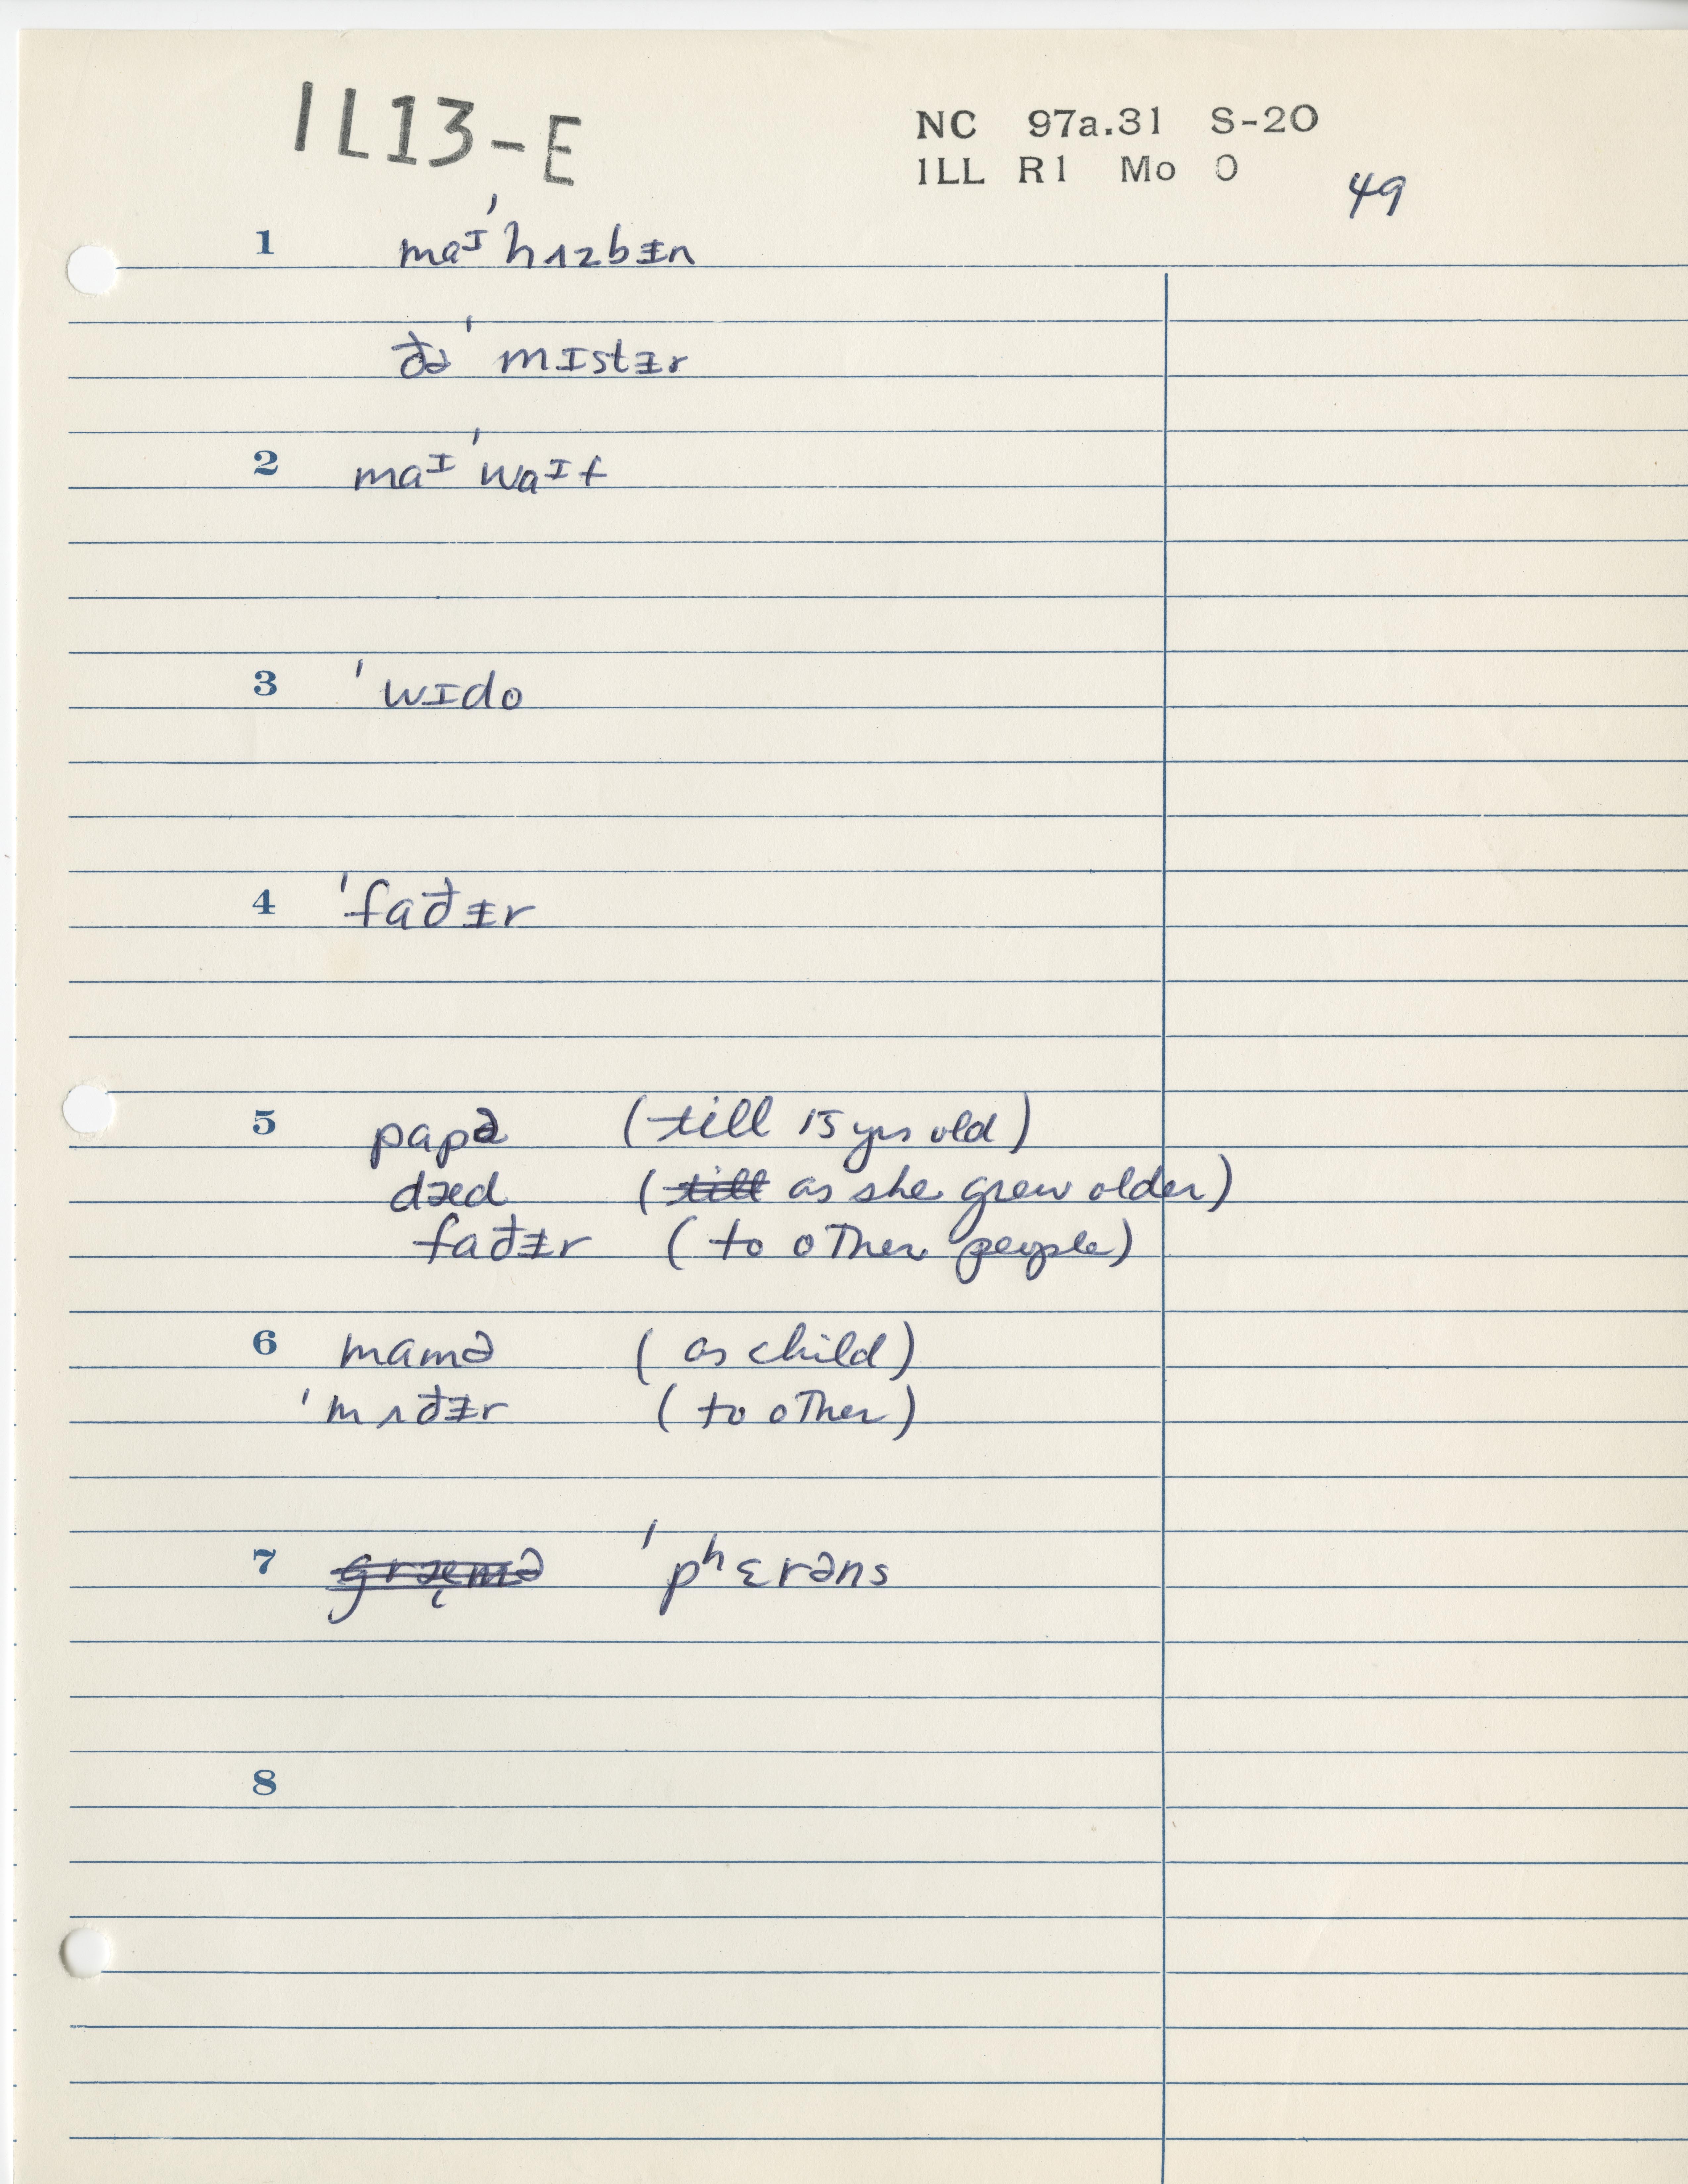 IL13-E
NC 97a.31 S-20
ILL R1 Mo O
49
1 maᶦ 'hʌzbɨn
ðə 'mɪstɨr
2 maᶦ 'waᶦf
3 'wɪdo
4 'faðɨr
5 papə (till 15 yrs old)
dæd (till as she grew older)
faðɨr (to other people)
6 mamə (as child)
'mʌðɨr (to other)
7 græ̨mə 'pʰɛrəns
8